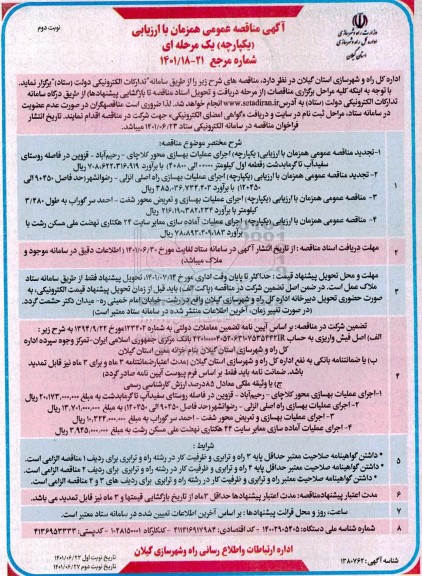 نوبت دوم
آگهی مناقصه عمومی همزمان با ارزیابی
(یکپارچه) یک مرحله ای
شماره مرجع ۲۱-۱۴۰۱/۱۸
وزارت راه و شهرسازی
اداره کل راه و شهرسازی
استان گیلان
اداره کل راه و شهرسازی استان گیلان در نظر دارد، مناقصه های شرح زیر را از طریق سامانه "تدارکات الکترونیکی دولت (ستاد)" برگزار نماید.
با توجه به اینکه کلیه مراحل برگزاری مناقصات (از مرحله دریافت و تحویل اسناد مناقصه تا بازگشایی پیشنهادها) از طریق درگاه سامانه
تدارکات الکترونیکی دولت (ستاد) به آدرس www.setadiran.ir انجام خواهد شد. لذا ضروری است مناقصه‏گران در صورت عدم عضویت
در سامانه ستاد، مراحل ثبت نام در سایت و دریافت «گواهی امضای الکترونیکی» جهت شرکت در مناقصه اقدام نمایند. تاریخ انتشار
فراخوان مناقصه در سامانه الکترونیکی ستاد ۱۴۰۱/۰۶/۲۳ میباشد.
۱
شرح مختصر موضوع مناقصه:
۱-تجدید مناقصه عمومی همزمان با ارزیابی( یکپارچه) اجرای عملیات بهسازی محور کلاچای - رحیم‌آباد - قزوین در فاصله روستای
سفیدآب تا گرمابدشت (قطعه اول کیلومتر
۲- تجدید مناقصه عمومی همزمان با ارزیابی (یکپارچه) اجرای عملیات بهسازی راه اصلی انزلی - رضوانشهر(حد فاصل ۹۰۴۵۰ الی
۱۲۰۴۵۰) با برآورد ۳۸۵,۰۳۶,۷۳۳,۴۰۲ ریال
۳- مناقصه عمومی همزمان با ارزیابی (یکپارچه) اجرای عملیات بهسازی و تعریض محور شفت - احمد سر گوراب به طول ۳/۲۸۰
کیلومتر با برآورد ۲۱۶,۱۹۰,۳۸۲,۲۳۴ ریال
۴- مناقصه عمومی همزمان با ارزیابی (یکپارچه) اجرای عملیات آماده سازی معابر سایت ۲۴ هکتاری نهضت ملی مسکن رشت با
برآورد ۷۸,۸۹۳,۲۰۹,۱۸۳ ریال
۲
مهلت دریافت اسناد مناقصه : از تاریخ انتشار آگهی در سامانه ستاد لغایت مورخ ۱۴۰۱/۰۶/۳۰ (اطلاعات دقیق در سامانه موجود و
ملاک میباشد)
۳
مهلت و محل تحویل پیشنهاد قیمت : حداکثر تا پایان وقت اداری مورخ ۱۴۰۱/۰۷/۱۴، تحویل پیشنهاد فقط از طریق سامانه ستاد
ملاک عمل است. در ضمن اصل تضمین شرکت در مناقصه (پاکت الف) باید قبل از زمان تحویل پیشنهاد قیمت الکترونیکی، به
صورت حضوری تحویل دبیرخانه اداره کل راه و شهرسازی گیلان واقع در رشت- خیابان امام خمینی ره- میدان دکتر حشمت گردد.
(در صورت تغییر زمان، آخرین اطلاعات منتشر شده در سامانه ستاد معتبر است)
۴
تضمین شرکت در مناقصه: بر اساس آیین نامه تضمین معاملات دولتی به شماره ۱۲۳۴۰۲ مورخ ۱۳۹۴/۹/۲۲ به شرح زیر :
الف) اصل فیش واریزی به حساب بانک مرکزی جمهوری اسلامی ایران-تمرکز وجوه سپرده اداره
کل راه و شهرسازی استان گیلان بنام خزانه معین استان گیلان
ب) یا ضمانتنامه بانکی به نفع اداره کل راه و شهرسازی استان گیلان (مدت اعتبارضمانتنامه ۳ ماه و برای ۳ ماه نیز قابل تمدید
باشد. ضمانت نامه باید فقط بر اساس فرم پیوست آیین نامه صادر گردد)
ج) یا وثیقه ملکی معادل ۸۵درصد ارزش کارشناسی رسمی
۱-اجرای عملیات بهسازی محور کلاچای - رحیم‌آباد - قزوین در فاصله روستای سفیدآب تا گرمابدشت به مبلغ ۲۰,۱۷۳,۰۰۰,۰۰۰ ریال
۲- اجرای عملیات بهسازی راه اصلی انزلی - رضوانشهر(حد فاصل ۹۰۴۵۰ الی ۱۲۰۴۵۰) به مبلغ ۱۳,۷۰۱,۰۰۰,۰۰۰ ریال
۳- اجرای عملیات بهسازی و تعریض محور شفت - احمد سر گوراب به مبلغ ۱۰,۳۲۴,۰۰۰,۰۰۰ ریال
۴- اجرای عملیات آماده سازی معابر سایت ۲۴ هکتاری نهضت ملی مسکن رشت به مبلغ ۳,۹۴۵,۰۰۰,۰۰۰ ریال
۵
شرایط :
* داشتن گواهینامه صلاحیت معتبر حداقل پایه ۳ راه و ترابری و ظرفیت کار در رشته راه و ترابری برای ردیف ۱ مناقصه الزامی است.
* داشتن گواهینامه صلاحیت معتبر حداقل پایه ۲ راه و ترابری و ظرفیت کار در رشته راه و ترابری برای ردیف ۲ مناقصه الزامی است.
* داشتن گواهینامه صلاحیت معتبر حداقل پایه ۴ راه و ترابری و ظرفیت کار در رشته راه و ترابری برای ردیف های ۳ و ۴ مناقصه الزامی است.
۶
مدت اعتبار پیشنهادمناقصه: مدت اعتبار پیشنهادها حداقل ۳ماه از تاریخ بازگشایی قیمتها و ۳ ماه نیز قابل تمدید می باشد.
۷
ساعت، روز و محل قرائت پیشنهادها: بر اساس آخرین اطلاعات تعیین شده در سامانه ستاد معتبر است.
۸
شماره شناسه ملی دستگاه: ۱۴۰۰۲۹۰۵۴۰۵ - کد اقتصادی: ۴۱۱۴۱۶۹۱۷۹۸۴ - کدکارگاه ۱۰۲۸۱۵۰۰۰۱ - کدپستی: ۴۱۳۶۹۵۳۳۳۳
اداره ارتباطات واطلاع رسانی راه وشهرسازی گیلان
شناسه آگهی: ۱۳۸۰۷۶۲
تاریخ نوبت اول ۱۴۰۱/۰۶/۲۳
تاریخ نوبت دوم ۱۴۰۱/۰۶/۲۷